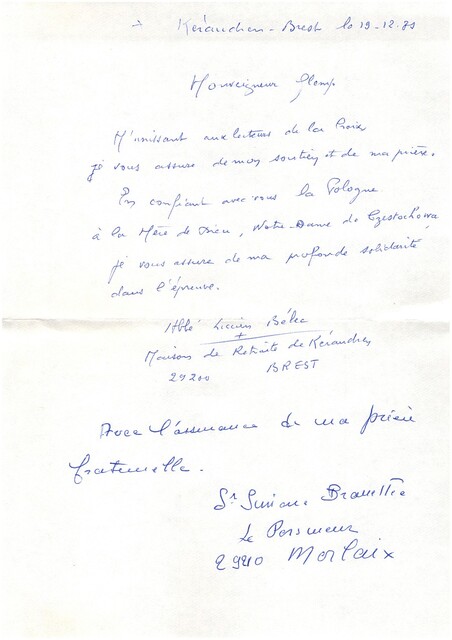 Kéraudren - Brest le 19-12-81
Monseigneur Glemp
M'unissant aux lecteurs de la Croix
je vous assure de mon soutien et de ma prière.
En confiant avec vous la Pologne
à la Mère de Dieu, Notre-Dame de Częstochowa
je vous assure de ma profonde solidarité
dans l'épreuve.
Abbé Lucien
Maison de Retraite de Kéraudren
29200 BREST
Avec l'assurance de ma prière
fraternelle.
Sr
Le
Morlaix